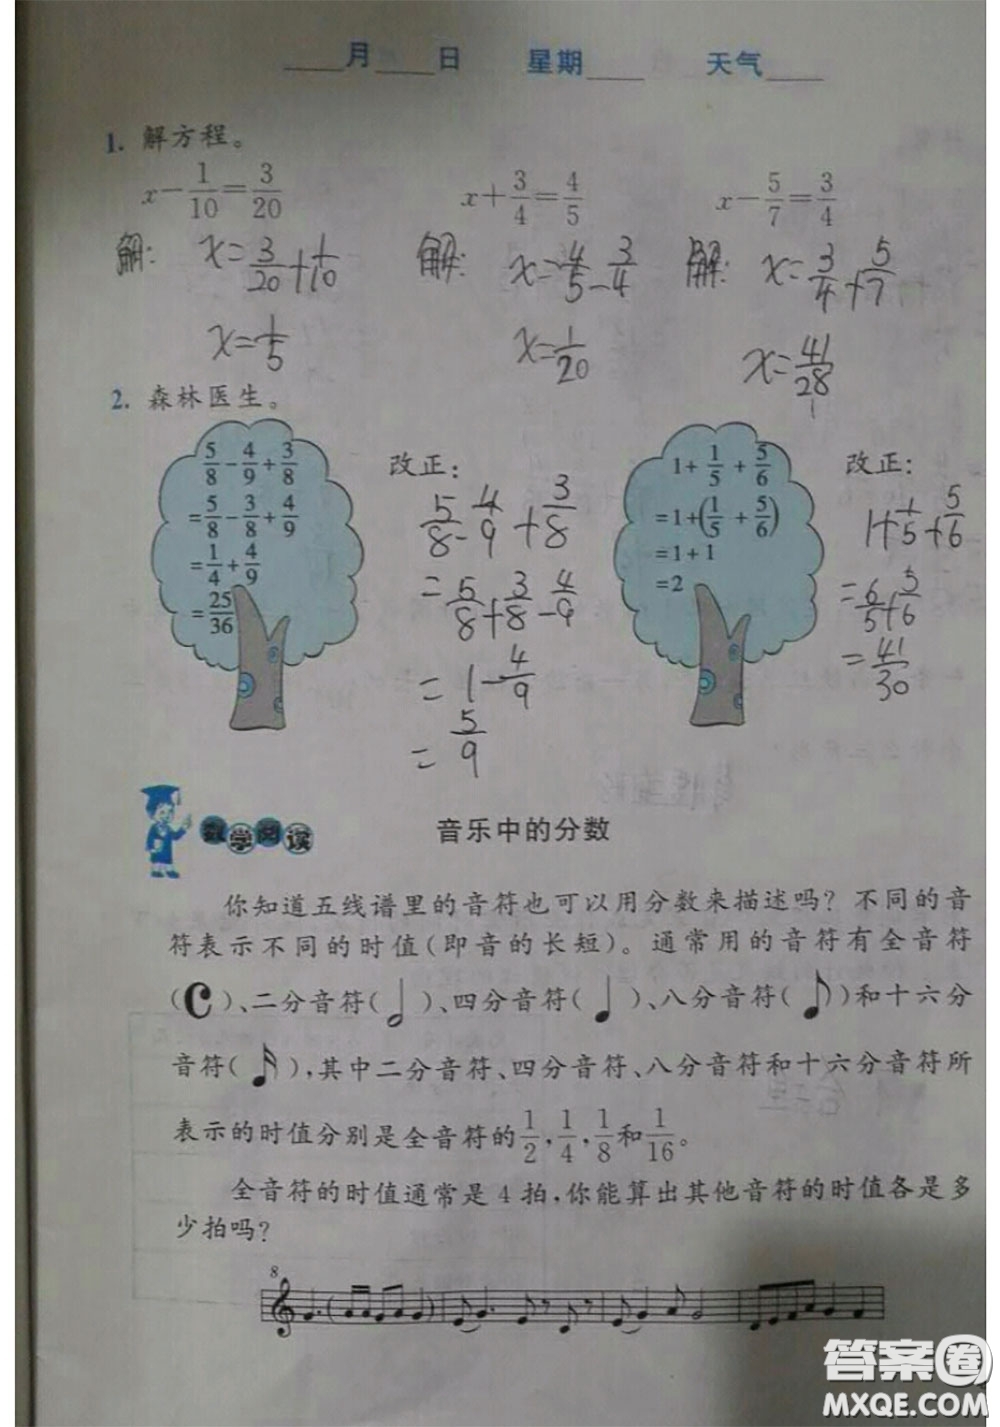 ____月____日 星期____ 天气____
1. 解方程。
x-1/10=3/20 x+3/4=4/5 x-5/7=3/4
解: x=3/20+1/10 解: x=4/5-3/4 解: x=3/4+5/7
x=1/5 x=1/20 x=41/28
2. 森林医生。
5/8-4/9+3/8
=5/8-3/8+4/9
=1/4+4/9
=25/36
改正:
5/8-4/9+3/8
=5/8+3/8-4/9
=1-4/9
=5/9
1+1/5+5/6
=1+(1/5+5/6)
=1+1
=2
改正:
1+1/5+5/6
=6/5+5/6
=41/30
数学阅读 音乐中的分数
你知道五线谱里的音符也可以用分数来描述吗？不同的音
符表示不同的时值(即音的长短)。通常用的音符有全音符
( )、二分音符( )、四分音符( )、八分音符( )和十六分
音符( ),其中二分音符、四分音符、八分音符和十六分音符所
表示的时值分别是全音符的1/2,1/4,1/8和1/16。
全音符的时值通常是4拍,你能算出其他音符的时值各是多
少拍吗?
8
答案圈
MXQE.COM